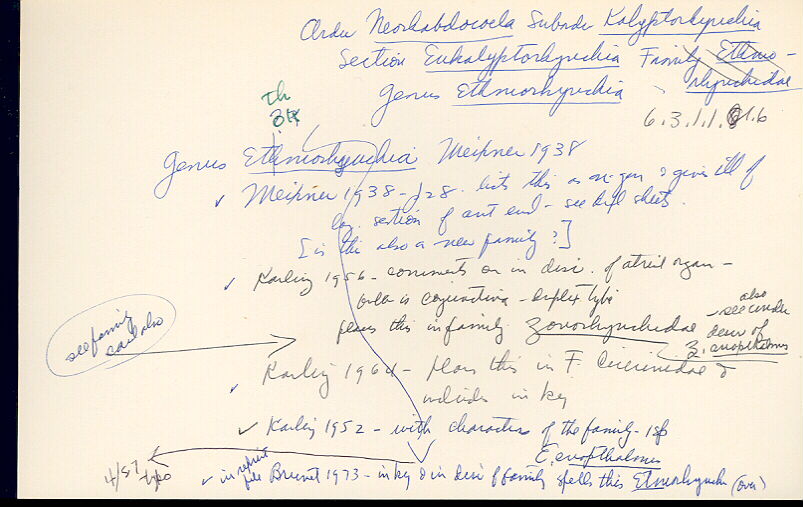 Order Neorhabdocoela Suborder Kalyptorhynchia
Section Eukalyptorhynchia Family Ethmo-
rhynchidae
Genus Ethmorhynchia
6.3.1.1.8.1.b
Genus Ethmorhynchia Meixner 1938
Meixner 1938 - lists this as n. gen & gives ill of
section of ant end - see sheets.
[is this also a new family?]
Karling 1956 - comments on in disc. of atrial organ -
conjunctiva - duplex type
places this in family Zonorhynchidae
also
- see under
descr of
Z.
see family
card also
Karling 1964 - places this in F. Cicerinidae &
includes in key
Karling 1952 - with characters of the family - 1 sp
E. anopthalmus
4/87 typo
in reprint
file Brunet 1973 - in key & in disc of family spells this Etmorhynchia (over)